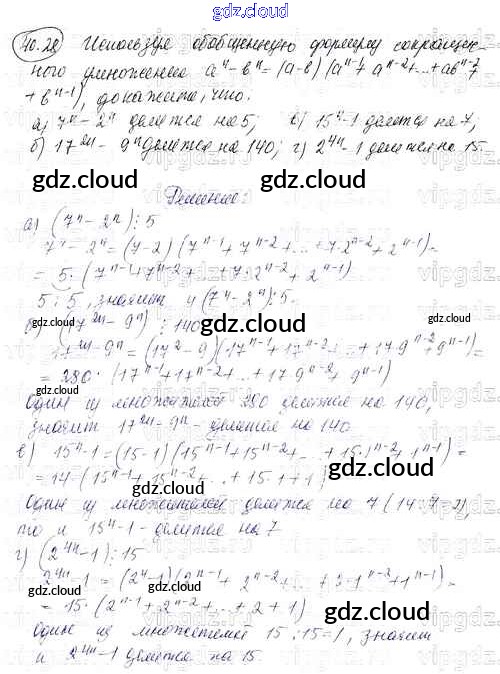 gdz.cloud
40.28 Используя обобщенную формулу сокращен-
ного умножения aⁿ-bⁿ=(a-b)(aⁿ⁻¹+aⁿ⁻²+...+abⁿ⁻²+
+bⁿ⁻¹), докажите, что:
а) 7ⁿ-2ⁿ делится на 5; в) 15ⁿ-1 делется на 7;
б) 17²ⁿ-9ⁿ делится на 140; г) 2⁴ⁿ-1 делится на 15.
gdz.cloud gdz.cloud
Решение:
а) (7ⁿ-2ⁿ):5
7ⁿ-2ⁿ=(7-2)(7ⁿ⁻¹+7ⁿ⁻²+...+7·2ⁿ⁻²+2ⁿ⁻¹)=
=5·(7ⁿ⁻¹+7ⁿ⁻²+...+7·2ⁿ⁻²+2ⁿ⁻¹)
5:5, значит и (7ⁿ-2ⁿ):5.
gdz.cloud
(17²ⁿ-9ⁿ):140
17²ⁿ-9ⁿ=(17²-9)(17ⁿ⁻¹+17ⁿ⁻²+...+17·9ⁿ⁻²+9ⁿ⁻¹)=
=280·(17ⁿ⁻¹+17ⁿ⁻²+...+17·9ⁿ⁻²+9ⁿ⁻¹)
gdz.cloud
Один из множителей 280 делится на 140,
значит 17²ⁿ-9ⁿ-делится на 140
в) 15ⁿ-1=(15-1)(15ⁿ⁻¹+15ⁿ⁻²+...+15·1ⁿ⁻²+1ⁿ⁻¹)=
=14·(15ⁿ⁻¹+15ⁿ⁻²+...+15·1+1)
gdz.cloud
Один из множителей делится на 7 (14:7=2),
то и 15ⁿ-1-делится на 7
г) (2⁴ⁿ-1):15
2⁴ⁿ-1=(2⁴-1)(2ⁿ⁻¹+2ⁿ⁻²+...+2·1ⁿ⁻²+1ⁿ⁻¹)=
gdz.cloud
=15(2ⁿ⁻¹+2ⁿ⁻²+...+2+1)
gdz.cloud
Один из множителей 15:15=1, значит
и 2⁴ⁿ-1 делится на 15.
gdz.cloud